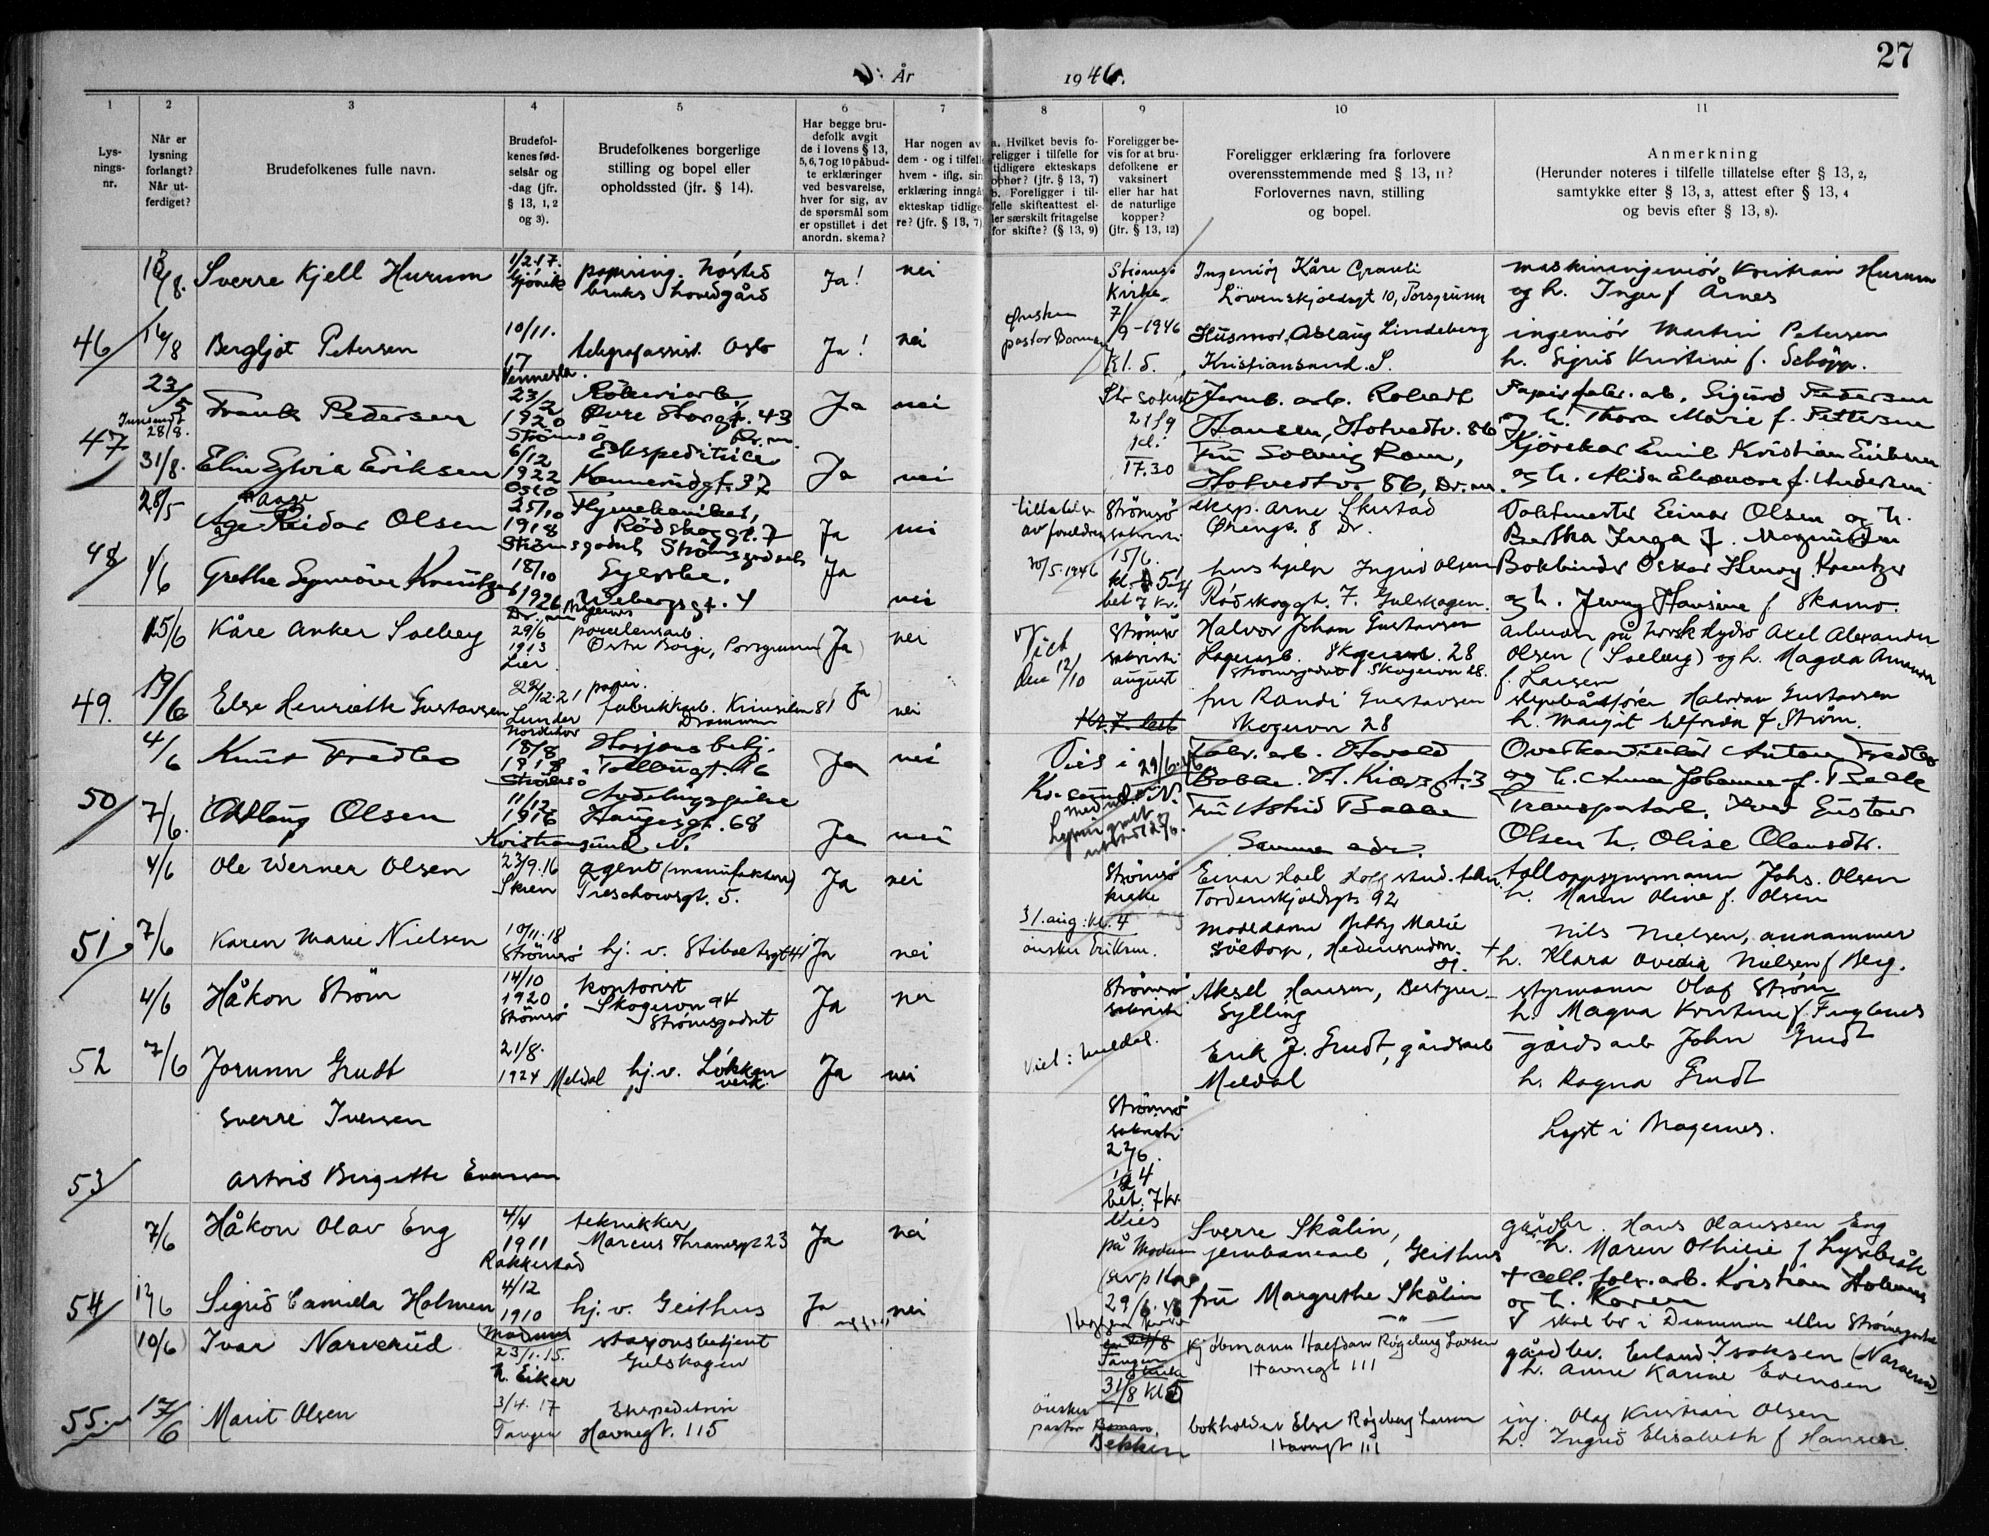 27
År 1946.
1 2 3 4 5 6 7 8 9 10 11
Lys-
nings-
nr.
Når er
lysning
forlangt?
Når ut-
ferdiget?
Brudefolkenes fulle navn.
Brudefol-
kenes fød-
selsår og
-dag (jfr.
§ 13, 1, 2
og 3).
Brudefolkenes borgerlige
stilling og bopel eller
opholdssted (jfr. § 14).
Har begge bru-
defolk avgit
de i lovens § 13,
5, 6, 7 og 10 påbud-
te erklæringer
ved besvarelse,
hver for sig, av
de spørsmål som
er opstillet i det
anordn. skema?
Har nogen av
dem - og i tilfelle
hvem - iflg. sin
erklæring inngå
ekteskap tidlige-
re? (jfr. § 13, 7)
a. Hvilket bevis fo-
religger i tilfelle for
tidligere ekteskaps
ophør? (jfr. § 13, 7)
b. Foreligger i til-
felle skifteattest el-
ler særskilt fritagelse
for skifte? (§ 13, 9)
Foreligger be-
vis for at bru-
defolkene er
vaksinert
eller har hat
de naturlige
kopper?
(jfr. § 13, 12)
Foreligger erklæring fra forlovere
overensstemmende med § 13, 11?
Forlovernes navn, stilling
og bopel.
Anmerkning
(Herunder noteres i tilfelle tillatelse efter § 13, 2,
samtykke efter § 13, 3, attest efter § 13, 4
og bevis efter § 13, 8).
Sverre Kjell Hurum
1/2.17.
Gjøvik
papiring.
Ja!
nei
Strømsö
Kirke
Ingeniør Kåre Grauli
Løvenskjoldsgt 10, Porsgrunn
maskiningeniør Kristian Hurum
og h. Inga f Årnes
46
16/8
Bergljot Petersen
10/11.
17
Vennesla.
telegrafassist. Oslo
Ja!
nei
ønsker
pastor
7/9-1946
kl. 5.
Husmor Aslaug Lindeberg
Kristiansand. S.
ingeniör Martin Petersen
h. Sigrid Kristine f.
23/5
Frank Pedersen
23/2
1920
Strömsö
Øvre Storgt. 43
Dr.m.
Ja
nei
Str sakristi
21/9
kl.
17.30
Jernb. arb. Robert
Hansen, Hotvedtv. 86
Papirfabr. arb. Sigurd Pedersen
og h. Thora Marie f. Pettersen
47
Innsendt
28/8.
31/8.
Elin Sylvia Eriksen
6/12
1922
Oslo
Ekspeditrice
Konnerudgt. 37
Ja
nei
Fru Solveig Ram,
Hotvedtvei 86, Dr.m.
Kjörekar Emil Kristian Eriksen
og h. Alida Eleonore f. Andersen
28/5
Aage
Reidar Olsen
25/10
1918
Strömsgodset
Rödskoggt. 7
Strömsgodset
Ja
nei
tillatelse
av foreldre
30/5.1946
Strömsö
sakristi
15/6.
bet 7 kr.
eksp. Arne Skistad
Ørengt. 8 Dr.
Vaktmester Einar Olsen og h.
Bertha Inga f. Magnussen
48
4/6
Grethe Synnöve Kreutzer
18/10
1926
Dr.m
Syerske.
Wiebergsgt. 4
Bragernes
Ja
nei
hushjelp Ingrid Olsen
Rödskoggt. 7. Gulskogen.
Bokbinder Oskar Henry Kreutzer
og h. Jenny Hansine f Skamo.
15/6
Kåre Anker Solberg
29/6
1913
Lier
porcelensarb.
Østre Borge, Porsgrunn
Ja
nei
Viet
den 12/10
Strömsö
sakristi
august
Halvor Johan Gustavsen
Lagerarb. Skogerveien 28
Strömsgodset
arbeider på Norsk Hydro Axel Alexander
Olsen (Solberg) og h. Magda Amanda
f. Larsen
49.
19/6
Else Henriette Gustavsen
22/12.21
papir.
fabrikkarb.
Drammen
Ja
nei
fru Randi Gustavsen
Skogervn 28
slepebåtförer Halvdan Gustavsen
h. Margit Elfrida f. Ström.
4/6
Knut Fredbo
Nordstrand
18/8
1918
Strömsö
Stasjonsbetj.
Tollbugt. 16
Ja
nei
Vies i 29/6.46
Kr.sund N.
Fabr. arb. Harald
Bakke. H. Kiærsgt. 3
Overkonduktör Anton Fredbo
og h. Anna Johanne f. Bakke
50
7/6.
Aslaug Olsen
11/12
1916
Kristiansund N.
Haugesgt. 68
Ja
nei
Fru Astrid Bakke
Samme adr.
Transportarb. Iver Gustav
Olsen h. Olise Olausdtr.
4/6
Ole Werner Olsen
23/9.16
Skien
agent (manufaktur)
Treschowsgt. 5.
Ja
nei
Strömsö
kirke
Tordenskjoldsgt 92
tolloppsynsmann Johs. Olsen
h. Maren Oline f. Olsen
51
7/6
Karen Marie Nielsen
10/11.18
Strömsö
hj. v. Stibolts gt 41
Ja
nei
31. aug. kl. 4
önsker Eriksen.
Nils Nielsen, annammer
h. Klara Ovidia Nielsen f Berg.
4/6
Håkon Ström
14/10
1920
Strömsö
kontorist
Skogervn 94
Strömsgodset
Ja
nei
Strömsö
sakristi
Aksel Hansen, Bestyrer
Sylling
styrmann Olaf Ström
h. Magna Kristine f. Fuglenes
52
7/6
Jorunn Grudt
21/8.
1924 Meldal
hj. v. Løkken
verk
Ja
nei
Viet: Meldal.
Erik J. Grudt, gårdsarb
Meldal
gårdsarb John Grudt
h. Ragna Grudt
Sverre Iversen
Strömsö
sakristi
22/6.
bet. 7 kr.
Lyst i Bragernes.
53
Astrid Birgitte Evensen
7/6
Håkon Olav Eng
4/4
1911
Rakkestad
tekniker
Marcus Thranesgt 23
Ja
nei
Vies
på Modum
29/6.46
Sverre Skålin,
jernbanearb, Geithus
gårdbr. Hans Olaussen Eng
h. Maren Othilie f Lysebråte
54
12/6
Sigrid Camilla Holmen
4/12
1910
Modum
hj. v. Geithus
Ja
nei
fru Margrethe Skålin
cell. fabr. arb. Kristian Holmen
og h. Karen
skal bo i Drammen eller Strömsgodset
10/6
Ivar Narverud
23/1.15.
N. Eiker
stasjonsbetjent
Gulskogen
Tangen
kirke
31/8 kl 5
Kjöbmann Halfdan Røgeberg Larsen
Havnegt 111
gårdbr. Erland Isaksen (Narverud)
h. Anne Karine Evensen
55.
17/6
Marit Olsen
3/4.17
Tangen
Ekspeditrise
Havnegt. 115
önsker
pastor
Bekken
bokholder Else Røgeberg Larsen
Havnegt 111
ing. Olaf Kristian Olsen
h. Ingrid Elisabeth f Hansen.